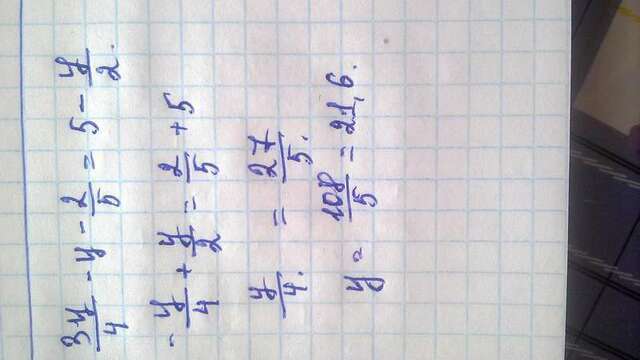 3y/4 - y - 2/5 = 5 - y/2.
- y/4 + y/2 = 2/5 + 5
y/4. = 27/5.
y = 108/5 = 21,6.